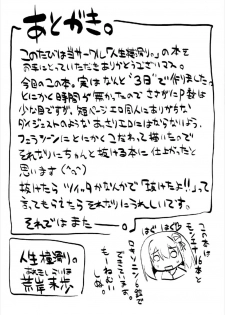 あとがき。
このたびは当サークル「人生横滑り。」の本を
お手にとっていただきありがとうございコス。
今回のこの本。実はなんと"3日"で作りました。
とにかく時間が無かったので さすがにP数は
少な目ですが、短ページエロ同人にありがちな
ダイジェストのような あっさりエロにはならないよう、
フェラシーンに とにかくこだわって描いたので
それなりにちゃんと抜ける本に仕上がったと
思います (^^)
抜けたら ツイッタかなんかで「抜けたよ!!」って
言ってもらえたら それなりに うれしいです。
それでは また
はぐはぐ
この本は
モンエナ6本と
ロキソニン6錠で
できています。
もーねんしぬ。
人生横滑り。
荒岸来歩